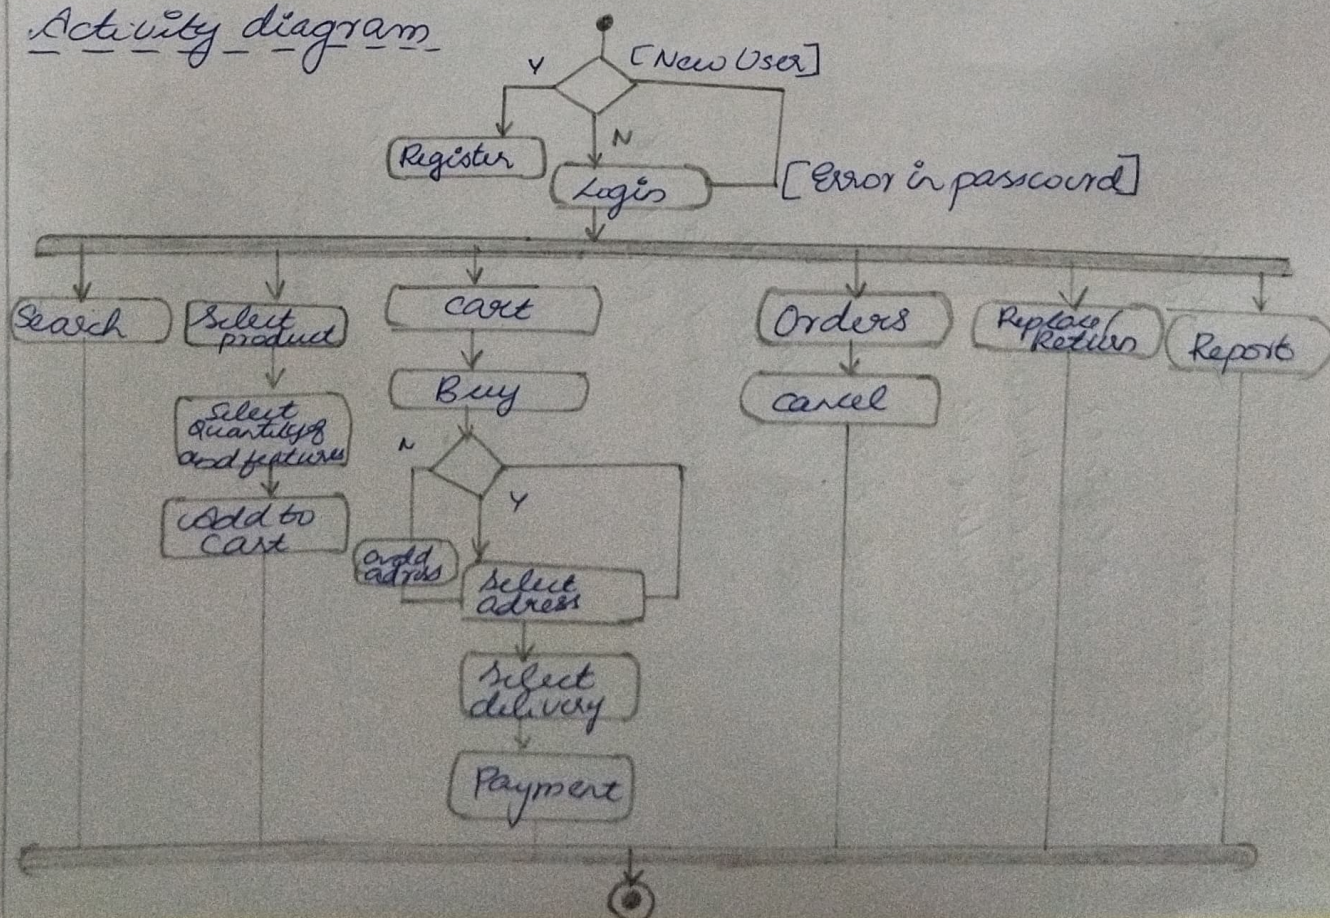 Activity diagram
Y
[New User]
N
Register
Login
[Error in password]
Search
Select
product
Cart
Orders
Replace/
Return
Report
Buy
Cancel
Select
Quantity
and features
N
Y
Add to
Cart
Add
adress
Select
adress
Select
delivery
Payment